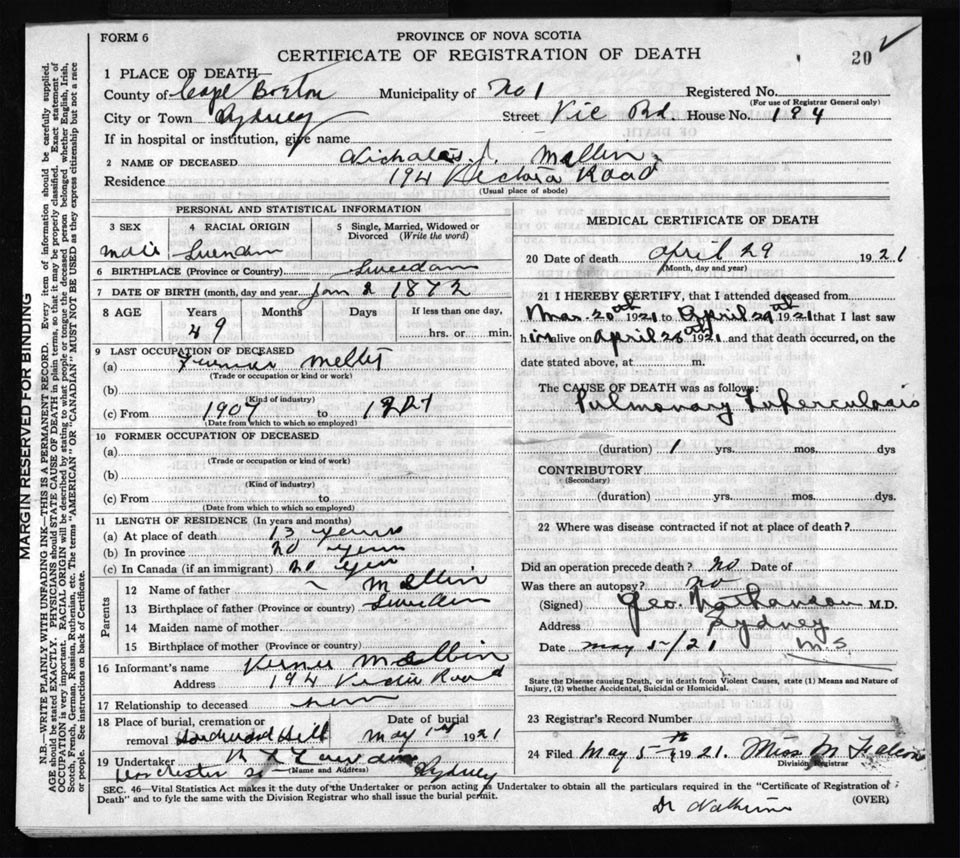 FORM 6
PROVINCE OF NOVA SCOTIA
CERTIFICATE OF REGISTRATION OF DEATH
20
1 PLACE OF DEATH
County of Cape Breton Municipality of No 1 Registered No.
(For use of Registrar General only)
City or Town Sydney Street Vic Rd. House No. 194
If in hospital or institution, give name
2 NAME OF DECEASED Nicholas J. Mellin
Residence 194 Victoria Road
(Usual place of abode)
PERSONAL AND STATISTICAL INFORMATION
3 SEX 4 RACIAL ORIGIN 5 Single, Married, Widowed or Divorced (Write the word)
Male
6 BIRTHPLACE (Province or Country)
7 DATE OF BIRTH (month, day and year Jan 2 1872
8 AGE Years Months Days If less than one day,
49 hrs. or min.
9 LAST OCCUPATION OF DECEASED
(a)
(Trade or occupation or kind of work)
(b)
(Kind of industry)
(c) From 1907 to 1921
(Date from which to which so employed)
10 FORMER OCCUPATION OF DECEASED
(a)
(Trade or occupation or kind of work)
(b)
(Kind of industry)
(c) From to
(Date from which to which so employed)
11 LENGTH OF RESIDENCE (In years and months)
(a) At place of death 13 years
(b) In province 20 years
(c) In Canada (if an immigrant) 20
Parents
12 Name of father Mellin
13 Birthplace of father (Province or country)
14 Maiden name of mother
15 Birthplace of mother (Province or country)
16 Informant's name Mellin
Address 194 Road
17 Relationship to deceased
18 Place of burial, cremation or removal Hardwood Hill Date of burial May 1st 1921
19 Undertaker
(Name and Address)
Dorchester St Sydney
MEDICAL CERTIFICATE OF DEATH
20 Date of death April 29 1921
(Month, day and year)
21 I HEREBY CERTIFY, that I attended deceased from
Mar. 20th 1921 to April 29th 1921 that I last saw
him alive on April 28th 1921 and that death occurred, on the
date stated above, at m.
The CAUSE OF DEATH was as follows:
Pulmonary Tuberculosis
(duration) 1 yrs. mos. dys
CONTRIBUTORY
(Secondary)
(duration) yrs. mos. dys.
22 Where was disease contracted if not at place of death?
Did an operation precede death? no Date of
Was there an autopsy? no
(Signed) Geo. Nathanson M.D.
Address Sydney
Date May 5/21 N.S.
State the Disease causing Death, or in death from Violent Causes, state (1) Means and Nature of
Injury, (2) whether Accidental, Suicidal or Homicidal.
23 Registrar's Record Number
24 Filed May 5th 1921. Miss M
Division Registrar
SEC. 46—Vital Statistics Act makes it the duty of the Undertaker or person acting as Undertaker to obtain all the particulars required in the "Certificate of Registration of
Death" and to fyle the same with the Division Registrar who shall issue the burial permit.
(OVER)
Dr
MARGIN RESERVED FOR BINDING
N.B.—WRITE PLAINLY WITH UNFADING INK—THIS IS A PERMANENT RECORD. Every item of information should be carefully supplied.
AGE should be stated EXACTLY. PHYSICIANS should STATE CAUSE OF DEATH in plain terms, so that it may be properly classified. Exact statement of
OCCUPATION is very important. RACIAL ORIGIN will be described by stating to what people or tongue the deceased person belonged whether English, Irish,
Scotch, French, German, Russian, Ruthenian, etc. The terms "AMERICAN" OR "CANADIAN" MUST NOT BE USED as they express citizenship but not a race
or people. See instructions on back of Certificate.